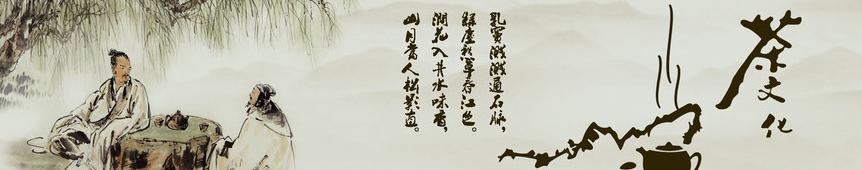 茶文化
乳窦溅溅通石脉，
绿尘愁草春江色。
涧花入井水味香，
山月当人松影直。